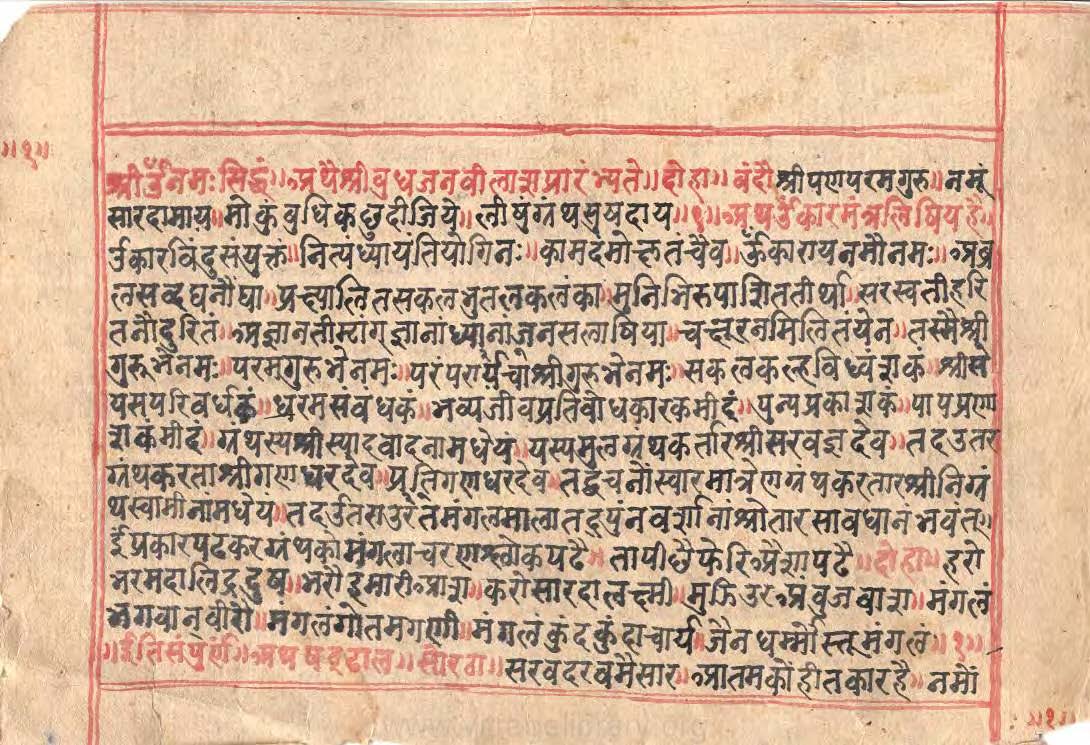 ॥१॥
श्रीर्उनमः सिद्धं॥अप्रथैश्रीबुधजनवीलाशप्रारंभ्यते॥दोहा॥बंदौश्रीपणपरमगुरु॥नमूं
सारदामाय॥मोकुंबुधिकछुदीजिये॥लीषुंग्रंथसुषदाय॥१॥अथर्उकारमंत्रलिषियहै॥
र्उकारविंदुसंयुक्तं॥नित्यध्यायंतियोगिनः॥कामदंमोक्षतंचैव॥र्ऊंकारायनमौनमः॥अब्र
लसव्दघनौघा॥प्रक्ष्यालितसकलभुतलकलंका॥मुनिभिरुपाशिततीर्था॥सरस्वतीहरि
तनौदुरितं॥अज्ञानतीम्टाग्ज्ञानांध्यानाजनसलाषिया॥चक्षूरनमिलितंयेन॥तस्मैश्री
गुरुभैनमः॥परमगुरुभैनमः॥परंपरार्यचाश्रीगुरुभेनमः॥सकलकल्हविध्वंशकं॥श्रीसो
यसपरिवर्धकं॥धरमसंवधकं॥भव्यजीवप्रतिबोधकारकमीदं॥पुन्यप्रकाशकं॥पापप्रणा
शकमीदं॥ग्रंथस्यश्रीस्यादवादनामधेयं॥यस्यमुलग्रथकर्तारश्रीसरवज्ञदेव॥तदउतर
ग्रंथकरताश्रीगणधरदेव॥प्रतिगणधरदेव॥तद्वचनौस्वारमात्रेणग्रंथकरतारश्रीनिग्रं
थस्वामीनांमधेयं॥तदर्उतराउरेतमंगलमालातद्पुंनवर्शानांश्रौतारसावधानंभवंत॥
ईंप्रकारपढकरग्रंथकोमंगलाचरणश्लोकपढै॥तापीछैफेरिअैशापढै॥दोहा॥हरो
भरमदालिद्रदुष॥भरौहमारीआश॥करोसारदालक्ष्मी॥मुझिउरअंबुजवाश॥मंगलं
भगवान्वीरो॥मंगलंगोतमगणी॥मंगलंकुंदकुंदाचार्य॥जैनधर्म्मौस्तूमंगलं॥१॥
॥ईतिसंपुर्ण॥अथषट्ढाल॥सोरठा॥सरवदरवमैसार॥आतमकोहीतकारहै॥नमों
॥१॥